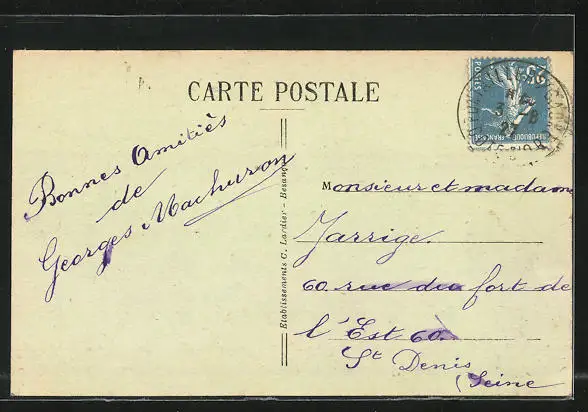 CARTE POSTALE
Bonnes Amitiés
de
Georges Machuron
Etablissements C. Lardier - Besançon
Monsieur et madame
Jarrige.
60 rue du fort de
l'Est 60.
St Denis
(Seine
25
POSTES
REPUBLIQUE FRANCAISE